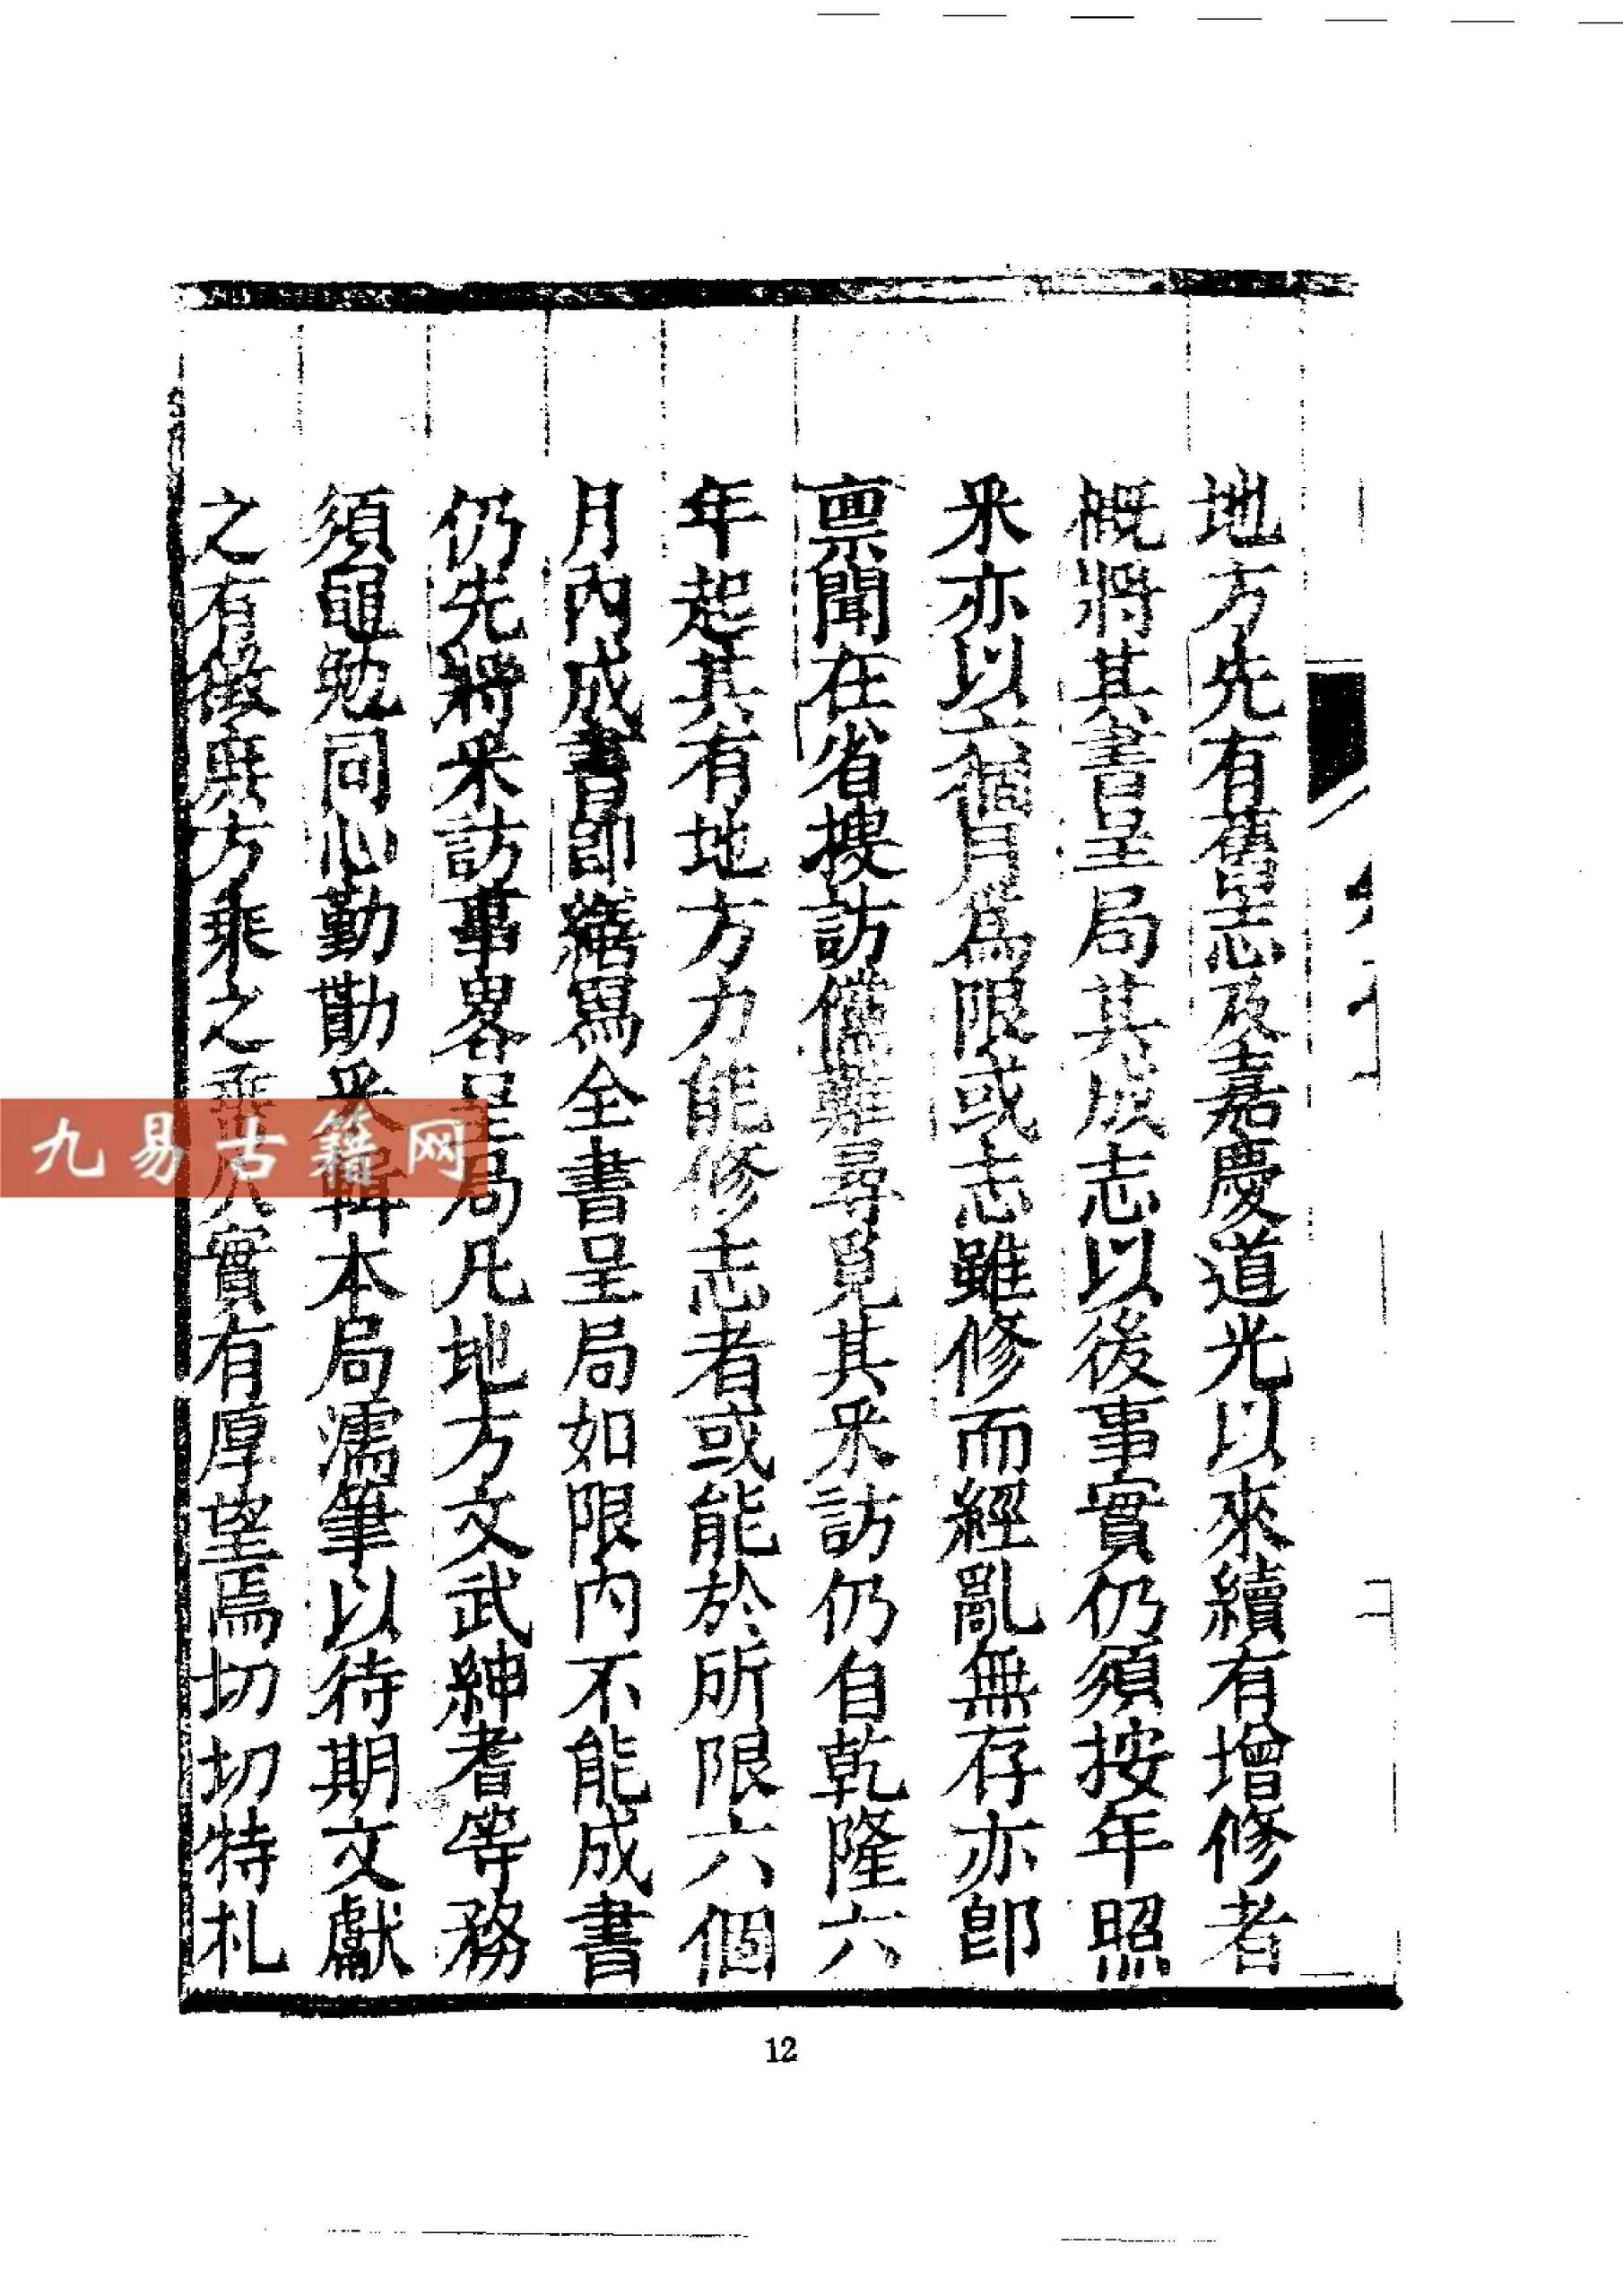 地方先有舊志及嘉慶道光以來續有增修者
概將其書呈局其成志以後事實仍須按年照
采亦以六個月爲限或志雖修而經亂無存亦卽
禀聞在省搜訪儻難尋覓其采訪仍自乾隆六
年起其有地方力能修志者或能於所限六個
月內成書卽繕寫全書呈局如限內不能成書
仍先將采訪事畧呈局凡地方文武紳耆等務
須黽勉同心勤勤采輯本局濡筆以待期文獻
之有徵庶方乘之垂久實有厚望焉切切特札
九易古籍网
12